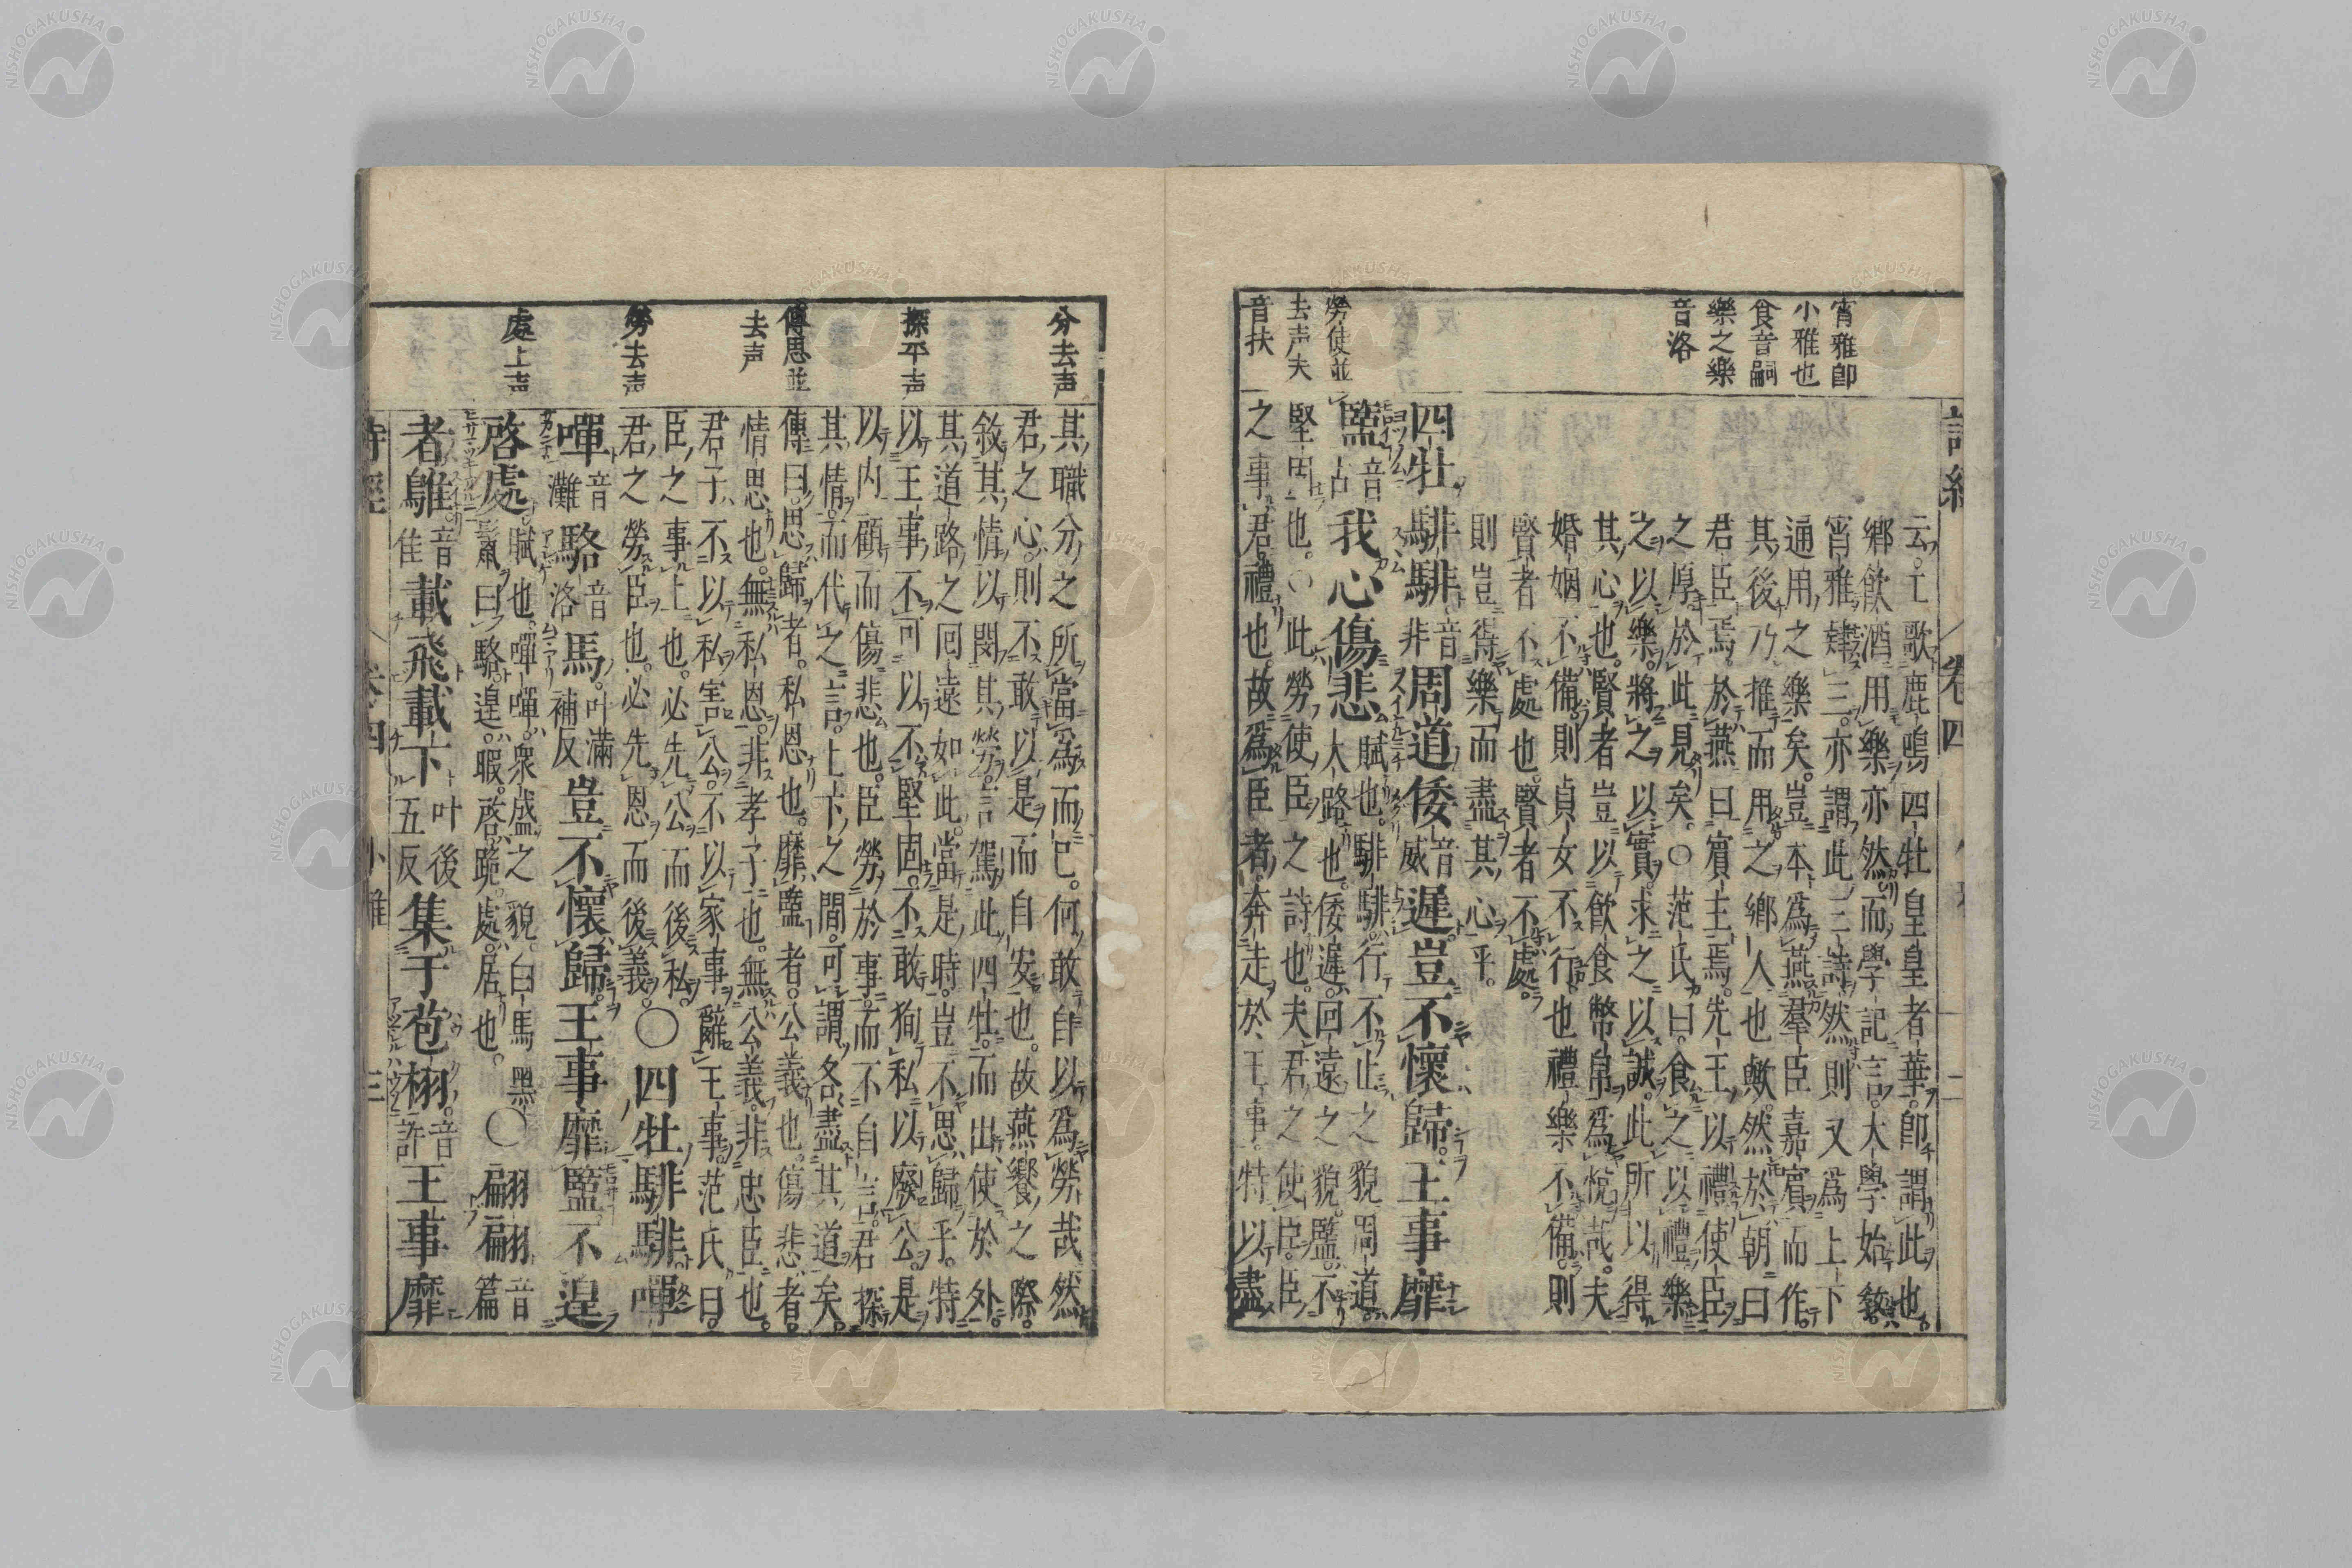 宵雅卽
小雅也
食音嗣
樂之樂
音洛
勞使並
去声夫
音扶
云工歌鹿鳴四牡皇皇者華卽謂此也
鄉飮酒用樂亦然而學記言大學始敎
宵雅肄三亦謂此三詩然則又爲上下
通用之樂矣豈本爲燕羣臣嘉賓而作
其後乃推而用之鄉人也歟然於朝曰
君臣焉於燕曰賓主焉先王以禮使臣
之厚於此見矣○范氏曰食之以禮樂
之以樂將之以實求之以誠此所以得
其心也賢者豈以飮食幣帛爲悅哉夫
婚姻不備則貞女不行也禮樂不備則
賢者不處也賢者不處
則豈得樂而盡其心乎
四牡騑騑音非周道倭音威遲豈不懷歸王事靡
盬音古我心傷悲賦也騑騑行不止之貌周道大路也倭遲回遠之貌盬不
堅固也○此勞使臣之詩也夫君之使臣臣
之事君禮也故爲臣者奔走於王事特以盡
分去声
探平声
傳思並
去声
勞去声
處上声
其職分之所當爲而已何敢自以爲勞哉然
君之心則不敢以是而自安也故燕饗之際
敘其情以閔其勞言駕此四牡而出使於外
其道路之回遠如此當是時豈不思歸乎特
以王事不可以不堅固不敢徇私以廢公是
以內顧而傷悲也臣勞於事而不自言君探
其情而代之言上下之間可謂各盡其道矣
傳曰思歸者私恩也靡盬者公義也傷悲者
情思也無私恩非孝子也無公義非忠臣也
君子不以私害公不以家事辭王事范氏曰
臣之事上也必先公而後私
君之勞臣也必先恩而後義○四牡騑騑嘽
嘽音灘駱音洛馬叶滿補反豈不懷歸王事靡盬不遑
啓處賦也嘽嘽衆盛之貌白馬黑鬣曰駱遑暇啓跪處居也○翩翩音篇
者鵻音隹載飛載下叶後五反集于苞栩音許王事靡
詩經 卷四 小雅 三